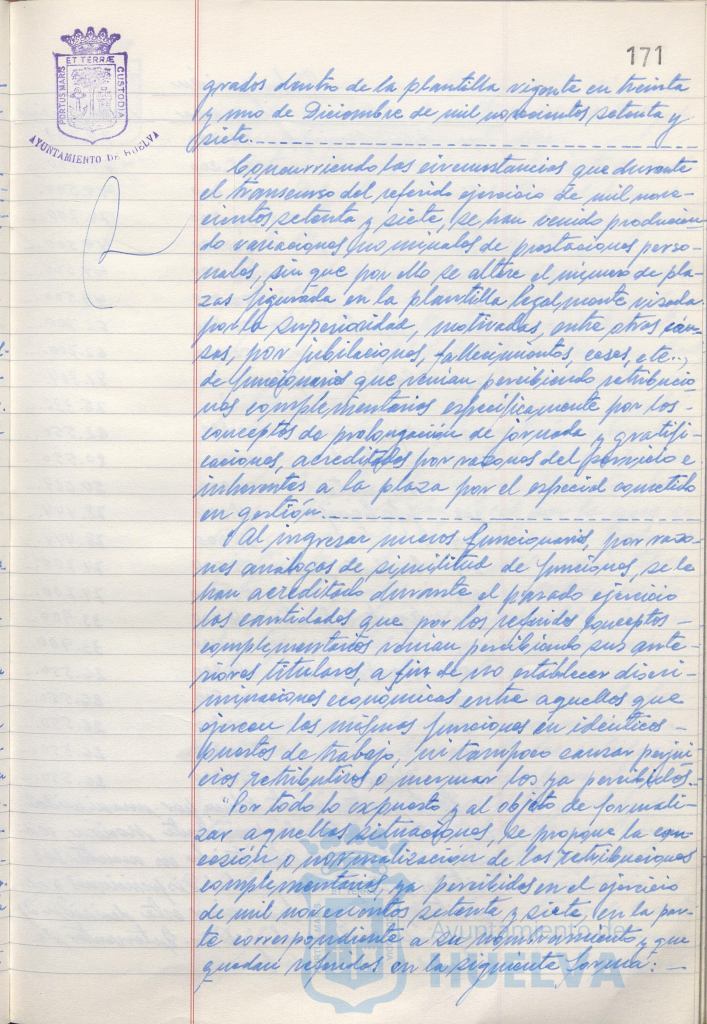 171
ET TERRÆ
PORTUS MARIS
CUSTODIA
AYUNTAMIENTO DE HUELVA
grados dentro de la plantilla vigente en treinta
y uno de Diciembre de mil novecientos setenta y
siete.
Concurriendo las circunstancias que durante
el transcurso del referido ejercicio de mil nove-
cientos setenta y siete, se han venido producien-
do variaciones nominales de prestaciones perso-
nales, sin que por ello se altere el número de pla-
zas figurada en la plantilla legalmente visada
por la superioridad, motivadas, entre otras cau-
sas, por jubilaciones, fallecimientos, ceses, etc.,
de funcionarios que venian percibiendo retribucio-
nes complementarias especificamente por los-
conceptos de prolongación de jornada y gratifi-
caciones, acreditables por razones del servicio e
inherentes a la plaza por el especial cometido
en gestión.
"Al ingresar nuevos funcionarios, por razo-
nes análogas de similitud de funciones, se le
han acreditado durante el pasado ejercicio
las cantidades que por los referidos conceptos-
complementarios venian percibiendo sus ante-
riores titulares, a fin de no establecer discri-
minaciones económicas entre aquellos que
ejercen las mismas funciones en idénticos-
puestos de trabajo, ni tampoco causar perjui-
cios retributivos o mermar los ya percibidos.-
"Por todo lo expuesto y al objeto de formali-
zar aquellas situaciones, se propone la con-
cesión o normalización de las retribuciones
complementarias, ya percibidos en el ejercicio
de mil novecientos setenta y siete, en la par-
te correspondiente a su nombramiento y que
quedan referidos en la siguiente forma:-
Ayuntamiento de
HUELVA